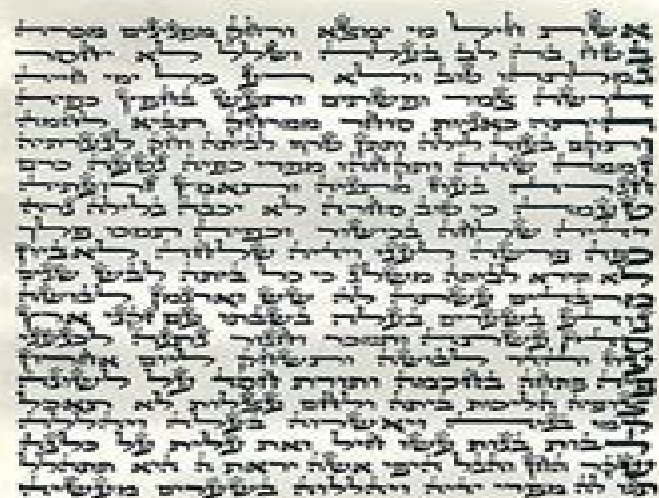 אשת חיל מי ימצא ורחק מפנינים מכרה
בטח בה לב בעלה ושלל לא יחסר
גמלתהו טוב ולא רע כל ימי חייה
דרשה צמר ופשתים ותעש בחפץ כפיה
היתה כאניות סוחר ממרחק תביא לחמה
ותקם בעוד לילה ותתן טרף לביתה וחק לנערתיה
זממה שדה ותקחהו מפרי כפיה נטעה כרם
חגרה בעוז מתניה ותאמץ זרועתיה
טעמה כי טוב סחרה לא יכבה בלילה נרה
ידיה שלחה בכישור וכפיה תמכו פלך
כפה פרשה לעני וידיה שלחה לאביון
לא תירא לביתה משלג כי כל ביתה לבש שנים
מרבדים עשתה לה שש וארגמן לבושה
נודע בשערים בעלה בשבתו עם זקני ארץ
סדין עשתה ותמכר וחגור נתנה לכנעני
עוז והדר לבושה ותשחק ליום אחרון
פיה פתחה בחכמה ותורת חסד על לשונה
צופיה הליכות ביתה ולחם עצלות לא תאכל
קמו בניה ויאשרוה בעלה ויהללה
רבות בנות עשו חיל ואת עלית על כלנה
שקר החן והבל היופי אשה יראת ה היא תתהלל
תנו לה מפרי ידיה ויהללוה בשערים מעשיה